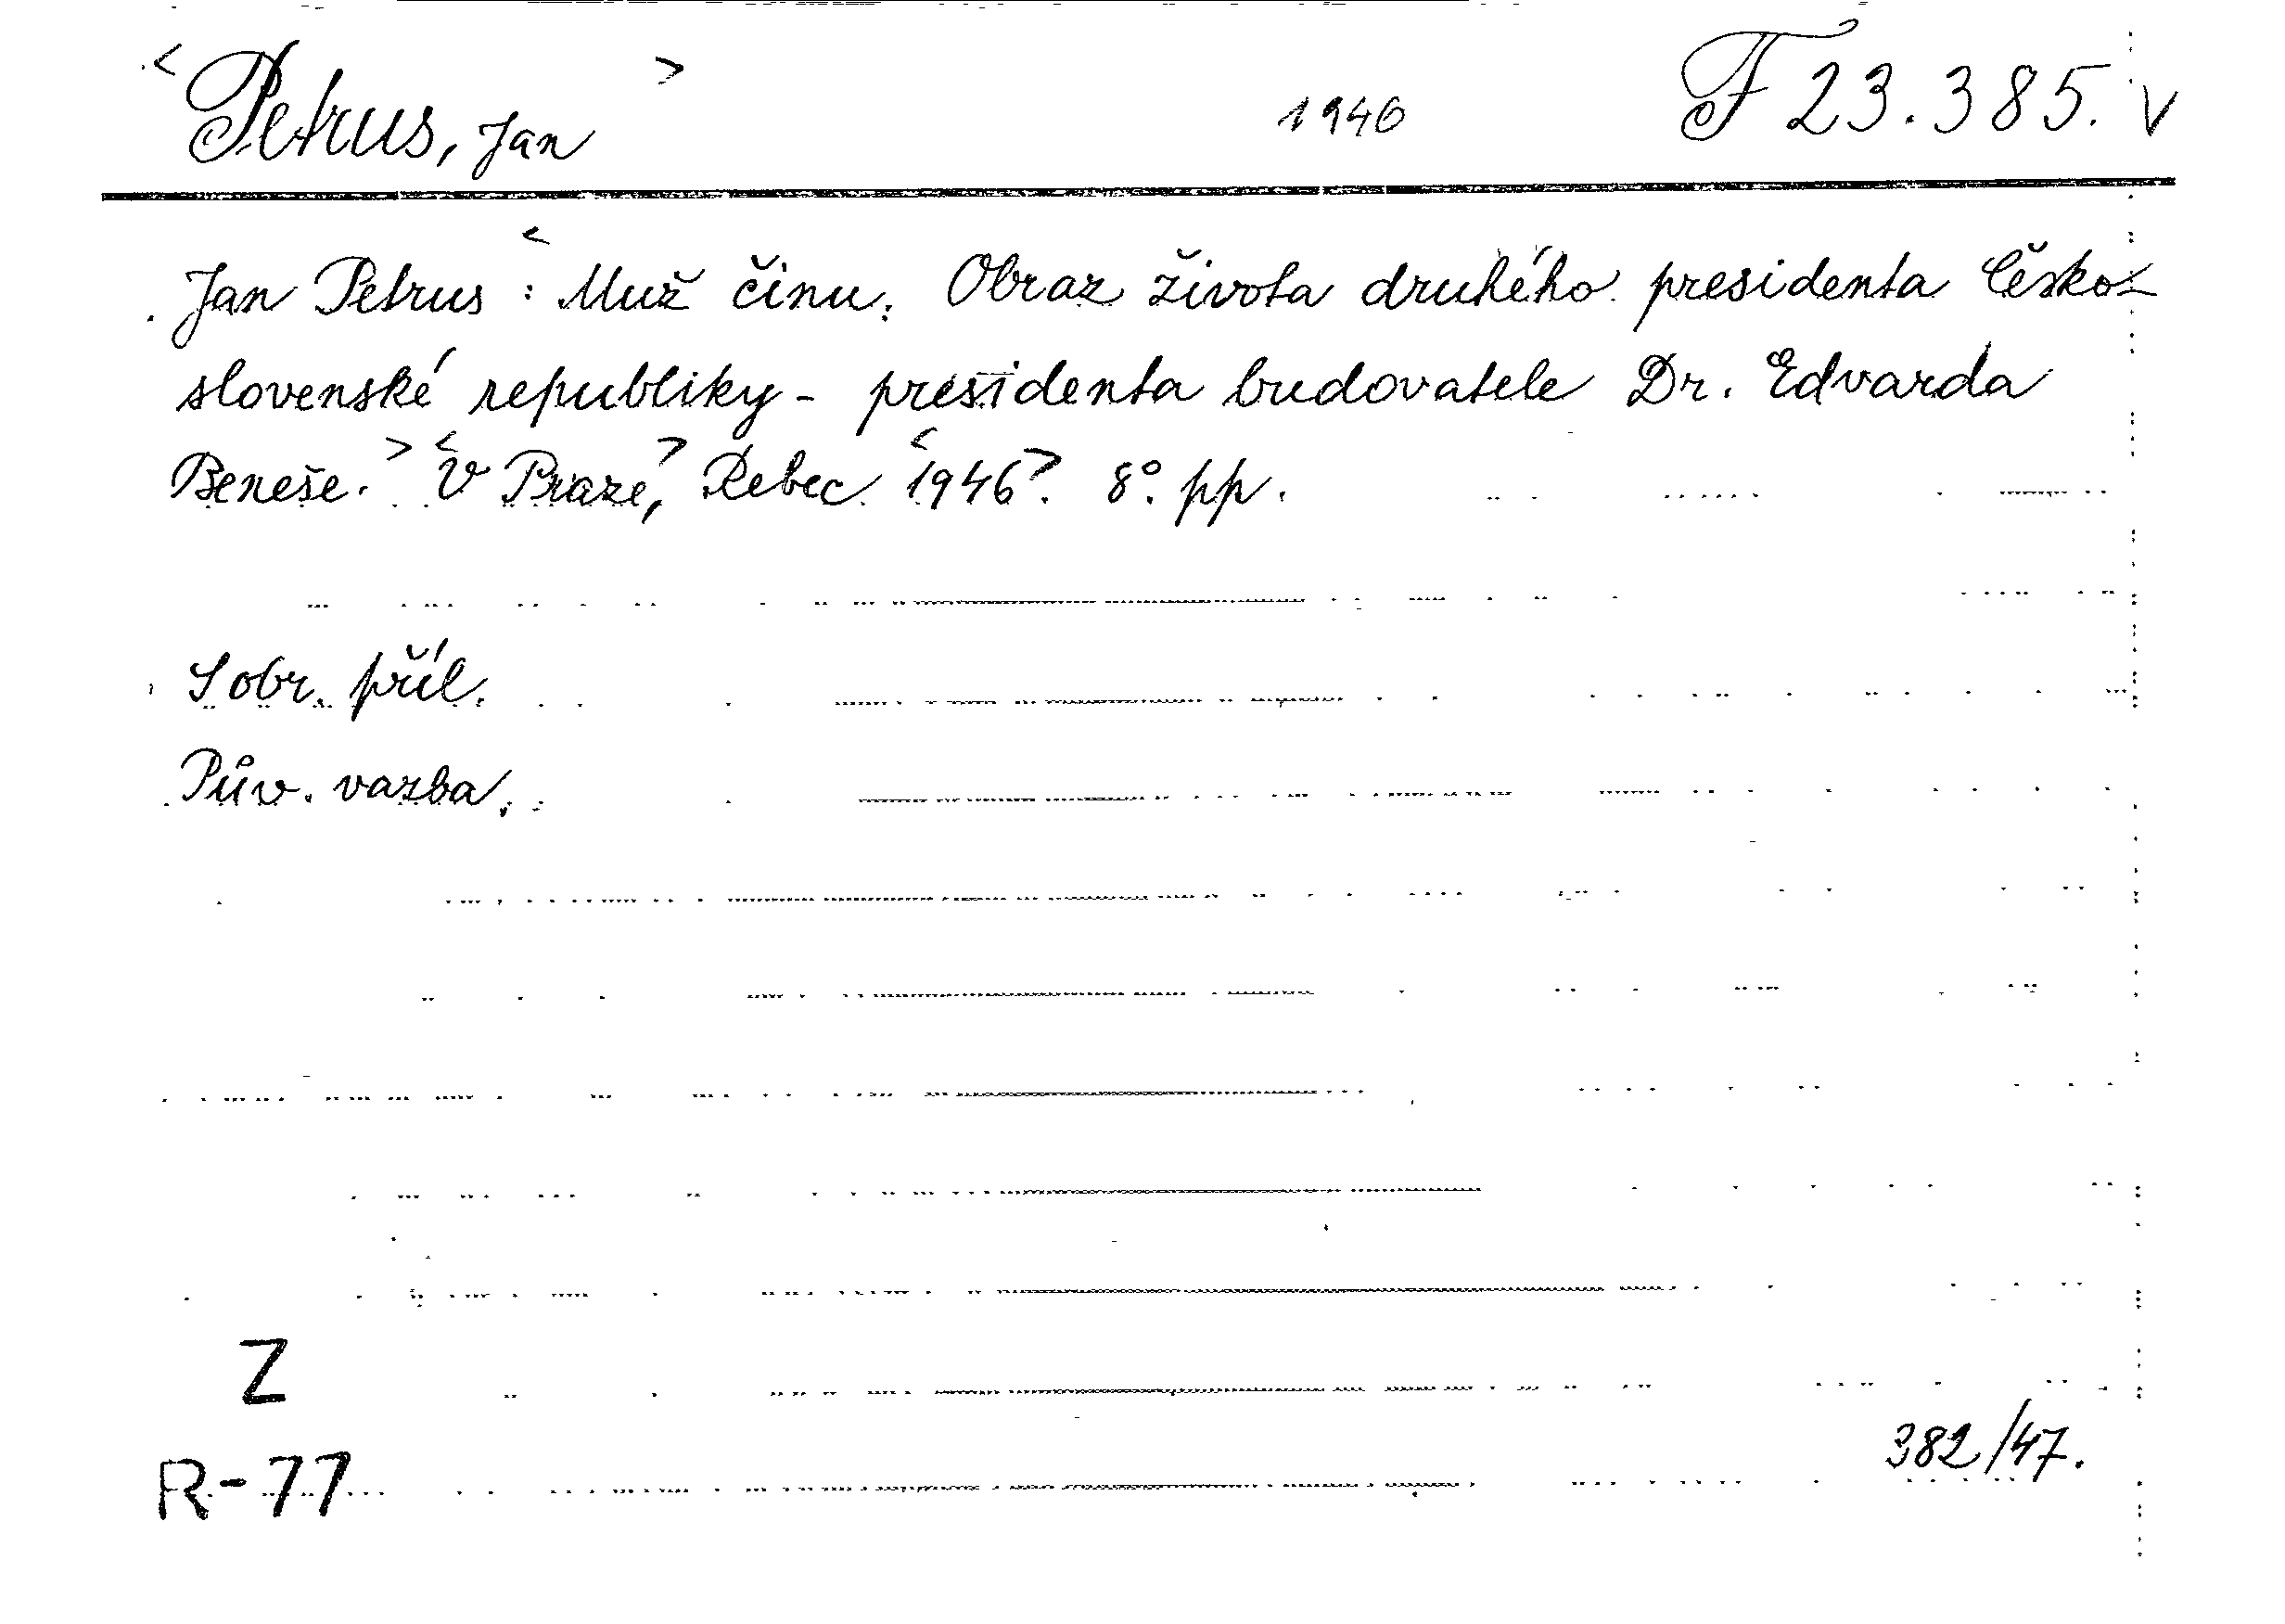 <Petrus, Jan> 1946 F 23.385. v
Jan Petrus :< Muž činu. Obraz života druhého presidenta Česko-
slovenské republiky - presidenta budovatele Dr. Edvarda
Beneše.> <V Praze,> Rebec <1946>. 8°. pp.
S obr. příl.
Pův. vazba.
Z
382/47.
R-77